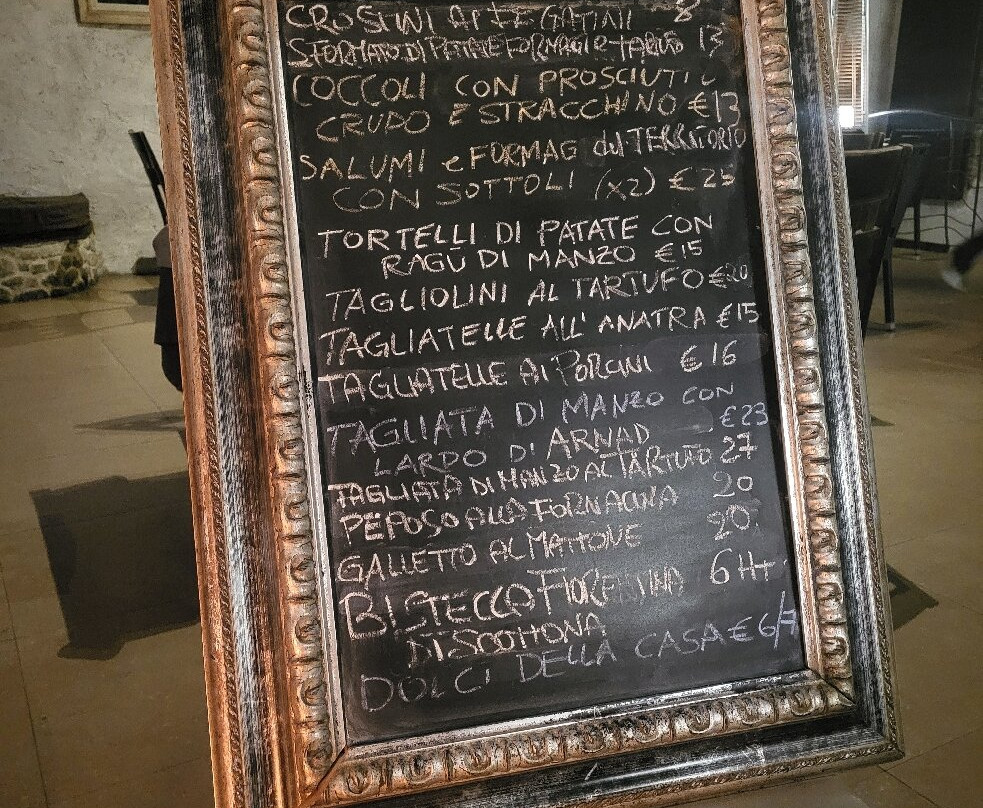 CROSTINI AI FEGATINI 8
SFORMATO DI PATATE FORMAGI e tartufo 13
COCCOLI CON PROSCIUTTO
CRUDO E STRACCHINO €13
SALUMI e FORMAG del TERRITORIO
CON SOTTOLI (x2) €25
TORTELLI DI PATATE CON
RAGÙ DI MANZO €15
TAGLIOLINI AL TARTUFO €20
TAGLIATELLE ALL'ANATRA €15
TAGLIATELLE AI PORCINI €16
TAGLIATA DI MANZO CON
LARDO D'ARNAD €23
TAGLIATA DI MANZO AL TARTUFO 27
PEPOSO ALLA FORNACINA 20
GALLETTO AL MATTONE 20
BISTECCA FIORENTINA 6 Ht
DI SCOTTONA
DOLCI DELLA CASA € 6/7